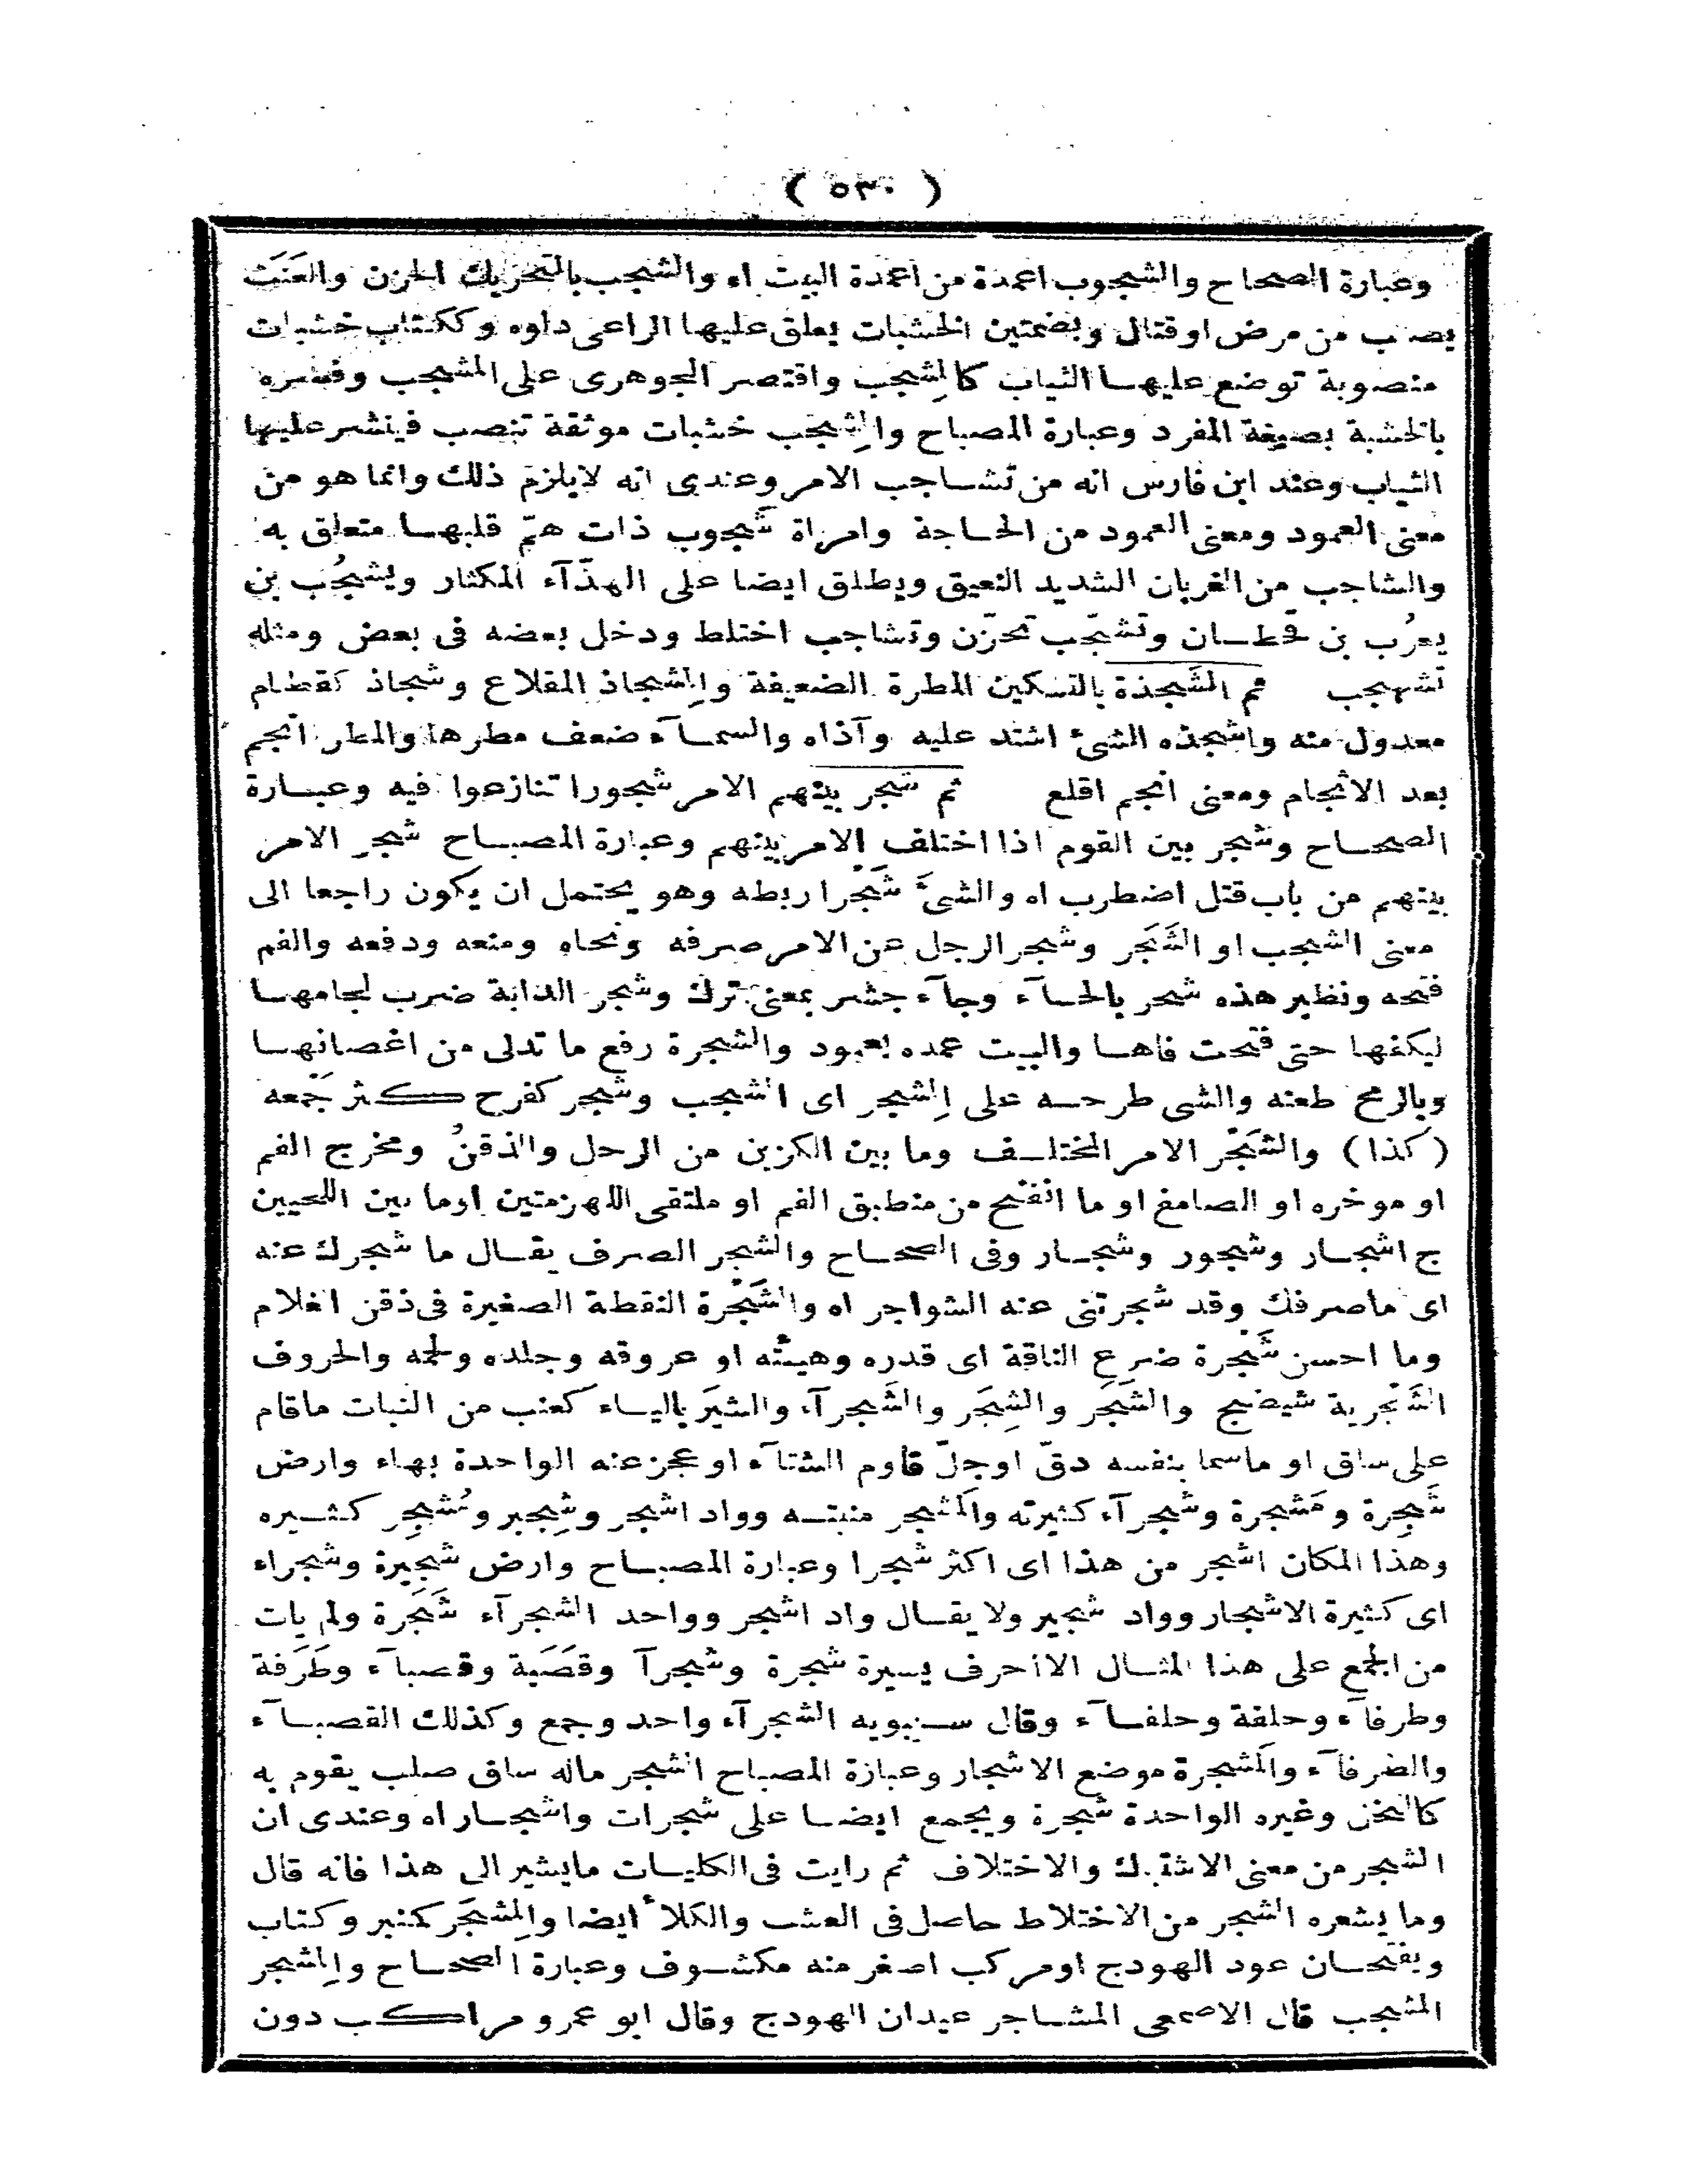 ( ٥٣٠ )
وعبارة الصحاح والشجوب اعمدة من اعمدة البيت اه والشجب بالتحريك الحزن والعَنَت
يصيب من مرض او قتال وبضمتين الخشبات يعلق عليها الراعى دلوه وككتاب خشبات
منصوبة توضع عليها الثياب كالمِشجب واقتصر الجوهرى على المشجب وفسره
بالخشبة بصيغة المفرد وعبارة المصباح والمِشجَب خشبات موثقة تنصب فينشر عليها
الثياب وعند ابن فارس انه من تشاجب الامر وعندى انه لايلزم ذلك وانما هو من
معنى العمود ومعنى العمود من الحاجة وامراة شَجوب ذات همّ قلبها متعلق به
والشاجب من الغربان الشديد النعيق ويطلق ايضا على الهذّآء المكثار ويشجُب بن
يعرُب بن قحطان وتشجّب تحزّن وتشاجب اختلط ودخل بعضه فى بعض ومثله
تشهجب ثم الشَجذة بالتسكين المطرة الضعيفة والمِشجاذ المقلاع وشجاذ كقطام
معدول منه واشجذه الشئ اشتد عليه وآذاه والسمآء ضعف مطرها والمطر انجم
بعد الاثجام ومعنى انجم اقلع ثم شجر بينهم الامر شجورا تنازعوا فيه وعبارة
الصحاح وشجر بين القوم اذا اختلف الامر بينهم وعبارة المصباح شجر الامر
بينهم من باب قتل اضطرب اه والشئَ شَجْرا ربطه وهو يحتمل ان يكون راجعا الى
معنى الشجب او الشَجَر وشجر الرجل عن الامر صرفه ونحاه ومنعه ودفعه والفم
فتحه ونظير هذه شحر بالحآء وجآء جشر بمعنى ترك وشجر الدابة ضرب لجامها
ليكفها حتى فتحت فاها والبيت عمده بعمود والشجرة رفع ما تدلى من اغصانها
وبالرمح طعنه والشى طرحه على المِشجر اى المشجب وشجر كفرح كثر جَمعه
(كذا) والشَجْر الامر المختلف وما بين الكرين من الرحل والذقنُ ومخرج الفم
او موخره او الصامغ او ما انفتح من منطبق الفم او ملتقى اللهزمتين او ما بين اللحيين
ج اشجار وشجور وشجار وفى الصحاح والشجر الصرف يقال ما شجرك عنه
اى ماصرفك وقد شجرتنى عنه الشواجر اه والشَجْرة النقطة الصغيرة فى ذقن الغلام
وما احسن شَجْرة ضرع الناقة اى قدره وهيئته او عروقه وجلده ولحمه والحروف
الشَجْرية شيضج والشَجَر والشِجَر والشَجرآء والشيَر بالياء كعنب من النبات ماقام
على ساق او ماسما بنفسه دقّ اوجلّ قاوم الشتآء او عجز عنه الواحدة بهاء وارض
شَجِرة ومَشجرة وشجرآء كثيرته والمَشجر منبته وواد اشجر وشجير ومُشجِر كثيره
وهذا المكان اشجر من هذا اى اكثر شجرا وعبارة المصباح وارض شجيرة وشجراء
اى كثيرة الاشجار وواد شجير ولا يقال واد اشجر وواحد الشجرآء شَجَرة ولم يات
من الجمع على هذا المثال الا احرف يسيرة شجرة وشجرآ وقصَبة وقصبآء وطَرَفة
وطرفآء وحلفة وحلفآء وقال سيبويه الشجرآء واحد وجمع وكذلك القصبآء
والطرفآء والمَشجرة موضع الاشجار وعبارة المصباح الشجر ماله ساق صلب يقوم به
كالنخل وغيره الواحدة شجرة ويجمع ايضا على شجرات واشجار اه وعندى ان
الشجر من معنى الاشتباك والاختلاف ثم رايت فى الكليات مايشير الى هذا فانه قال
وما يشعره الشجر من الاختلاط حاصل فى العشب والكلأ ايضا والمِشجَر كمنبر وكتاب
ويفتحان عود الهودج اومركب اصغر منه مكشوف وعبارة الصحاح والمِشجر
المشجب قال الاصمعى المشاجر عيدان الهودج وقال ابو عمرو مراكب دون